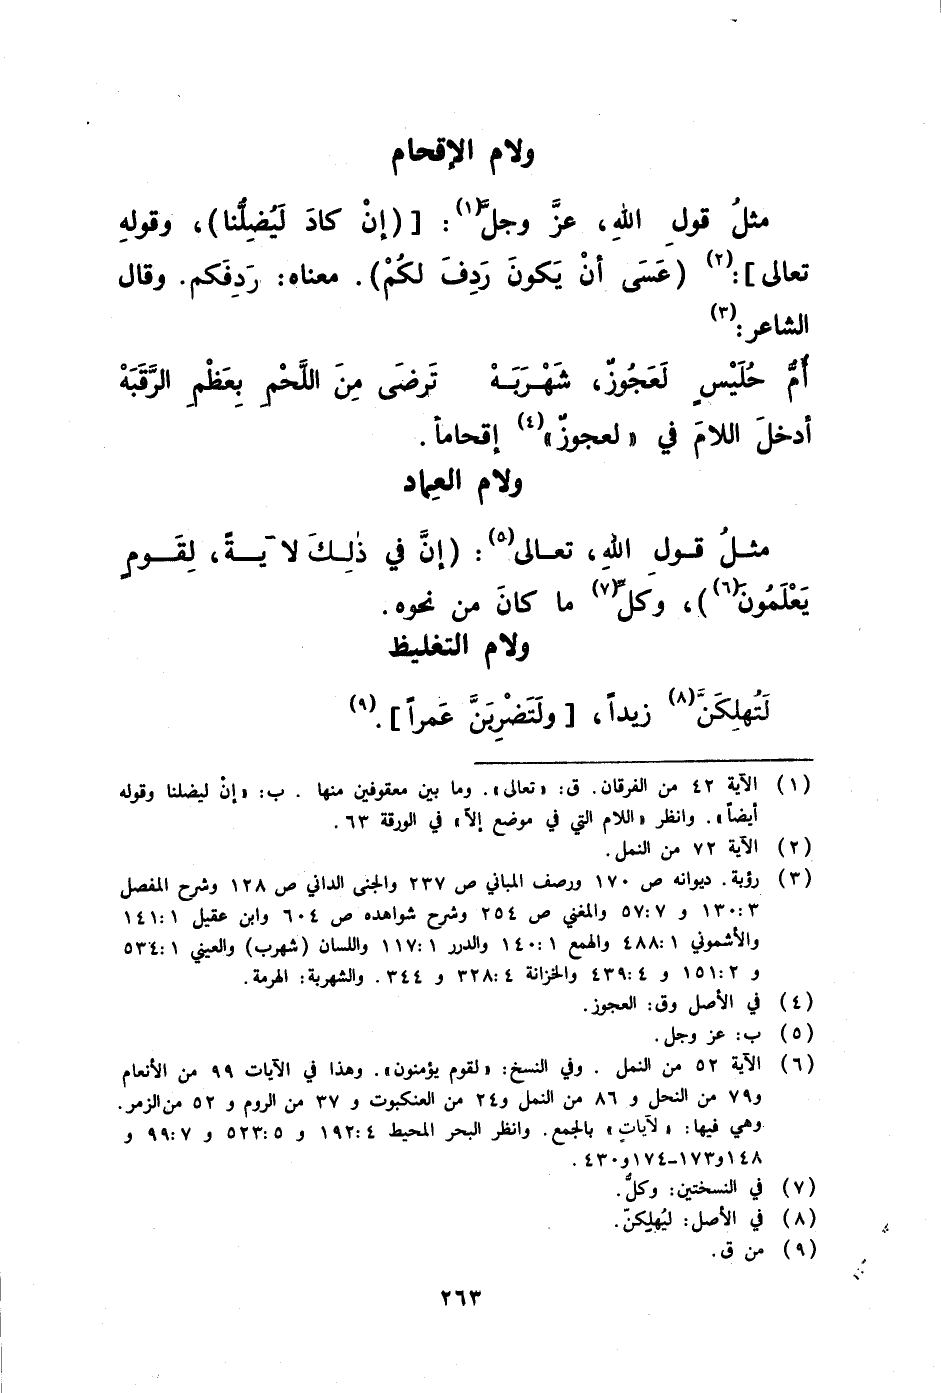 ولام الإقحام
مثلُ قولِ اللهِ، عزَّ وجلَّ(١): [(إنْ كادَ لَيُضِلُّنا)، وقولهِ
تعالى]:(٢) (عَسَى أنْ يَكونَ رَدِفَ لكُمْ). معناه: رَدِفَكم. وقال
الشاعر:(٣)
أمُّ حُلَيْسٍ لَعَجُوزٌ، شَهْرَبَهْ تَرضَى مِنَ اللَّحْمِ بِعَظْمِ الرَّقَبَهْ
أدخلَ اللامَ في «لعجوزٌ»(٤) إقحاماً.
ولام العِماد
مثـلُ قـولِ اللهِ، تعـالى(٥): (إنَّ في ذٰلِـكَ لَآيـةً، لِقَـومٍ
يَعْلَمُونَ(٦))، وكلُّ(٧) ما كانَ من نحوه.
ولام التغليظ
لَتُهلِكَنَّ(٨) زيداً، [ولَتَضْرِبَنَّ عَمراً].(٩)
(١) الآية ٤٢ من الفرقان. ق: «تعالى». وما بين معقوفين منها. ب: «إنْ ليضلنا وقوله
أيضاً». وانظر «اللام التي في موضع إلاّ» في الورقة ٦٣.
(٢) الآية ٧٢ من النمل.
(٣) رؤبة. ديوانه ص ١٧٠ ورصف المباني ص ٢٣٧ والجنى الداني ص ١٢٨ وشرح المفصل
٣:١٣٠ و ٧:٥٧ والمغني ص ٢٥٤ وشرح شواهده ص ٦٠٤ وابن عقيل ١:١٤١
والأشموني ١:٤٨٨ والهمع ١:١٤٠ والدرر ١:١١٧ واللسان (شهرب) والعيني ١:٥٣٤
و ٢:١٥١ و ٤:٤٣٩ والخزانة ٤:٣٢٨ و ٣٤٤. والشهربة: الهرمة.
(٤) في الأصل وق: العجوز.
(٥) ب: عز وجل.
(٦) الآية ٥٢ من النمل. وفي النسخ: «لقوم يؤمنون». وهذا في الآيات ٩٩ من الأنعام
و٧٩ من النحل و ٨٦ من النمل و٢٤ من العنكبوت و ٣٧ من الروم و ٥٢ من الزمر.
وهي فيها: «لآياتٍ» بالجمع. وانظر البحر المحيط ٤:١٩٢ و ٥:٥٢٣ و ٧:٩٩ و
١٤٨و١٧٣-١٧٤و٤٣٠.
(٧) في النسختين: وكلُّ.
(٨) في الأصل: ليُهلِكنّ.
(٩) من ق.
٢٦٣